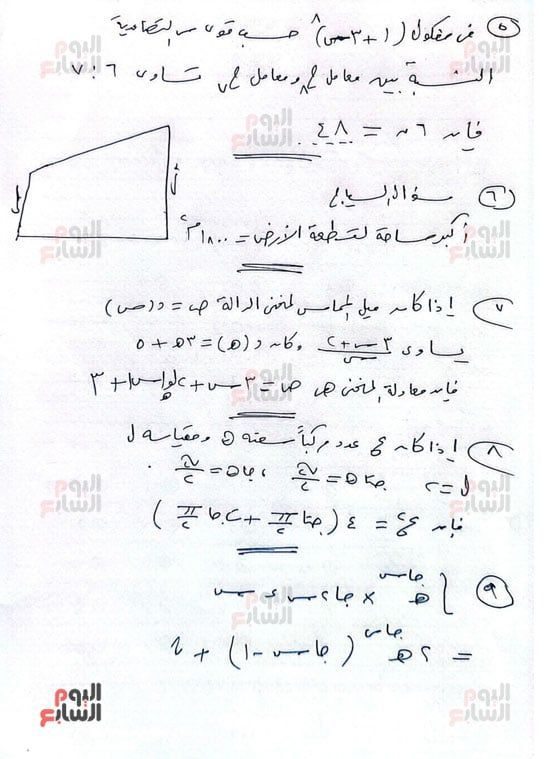 ٥ في مفكوك (١ + ٣س)^٨ حسب قوى س التصاعدية
النسبة بين معامل ح٨ ومعامل ح٧ تساوى ٦ : ٧
فإن ٦ن = ٤٨
٦ سؤال السياج
ل ل
أكبر مساحة لقطعة الأرض = ١٨٠٠ م٢
٧ إذا كان ميل المماس لمنحنى الدالة ص = د(س)
يساوى (٣س + ٢)/س وكان د(ه) = ٣ه + ٥
فإن معادلة المنحنى هى ص = ٣س + ٢ لو|س| + ٣
٨ إذا كان ع عدد مركباً سعته θ ومقياسه ل
ل = ٢ جتا θ = √٢/٢ ، جا θ = √٢/٢
فإن ع٢ = ٤ (جتا π/٢ + ت جا π/٢)
٩ ∫ ه^جاس × جا٢س ءس
= ٢ ه^جاس (جاس - ١) + ث
اليوم السابع